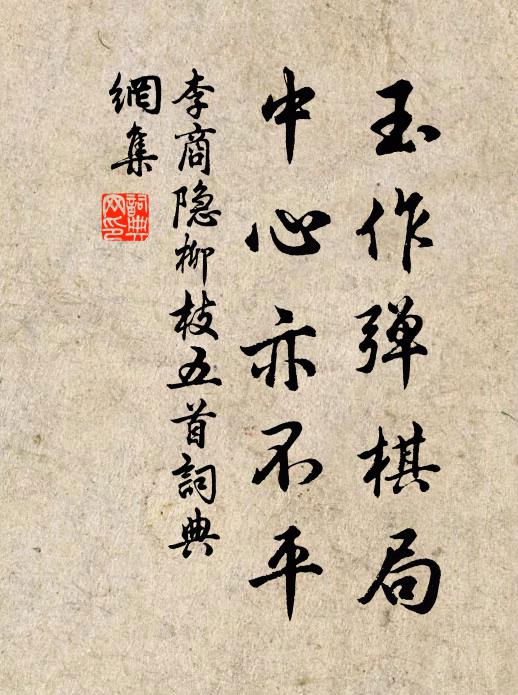 玉作弹棋局
中心亦不平
李商隐柳枝五首詞典
網集
詞典
网印